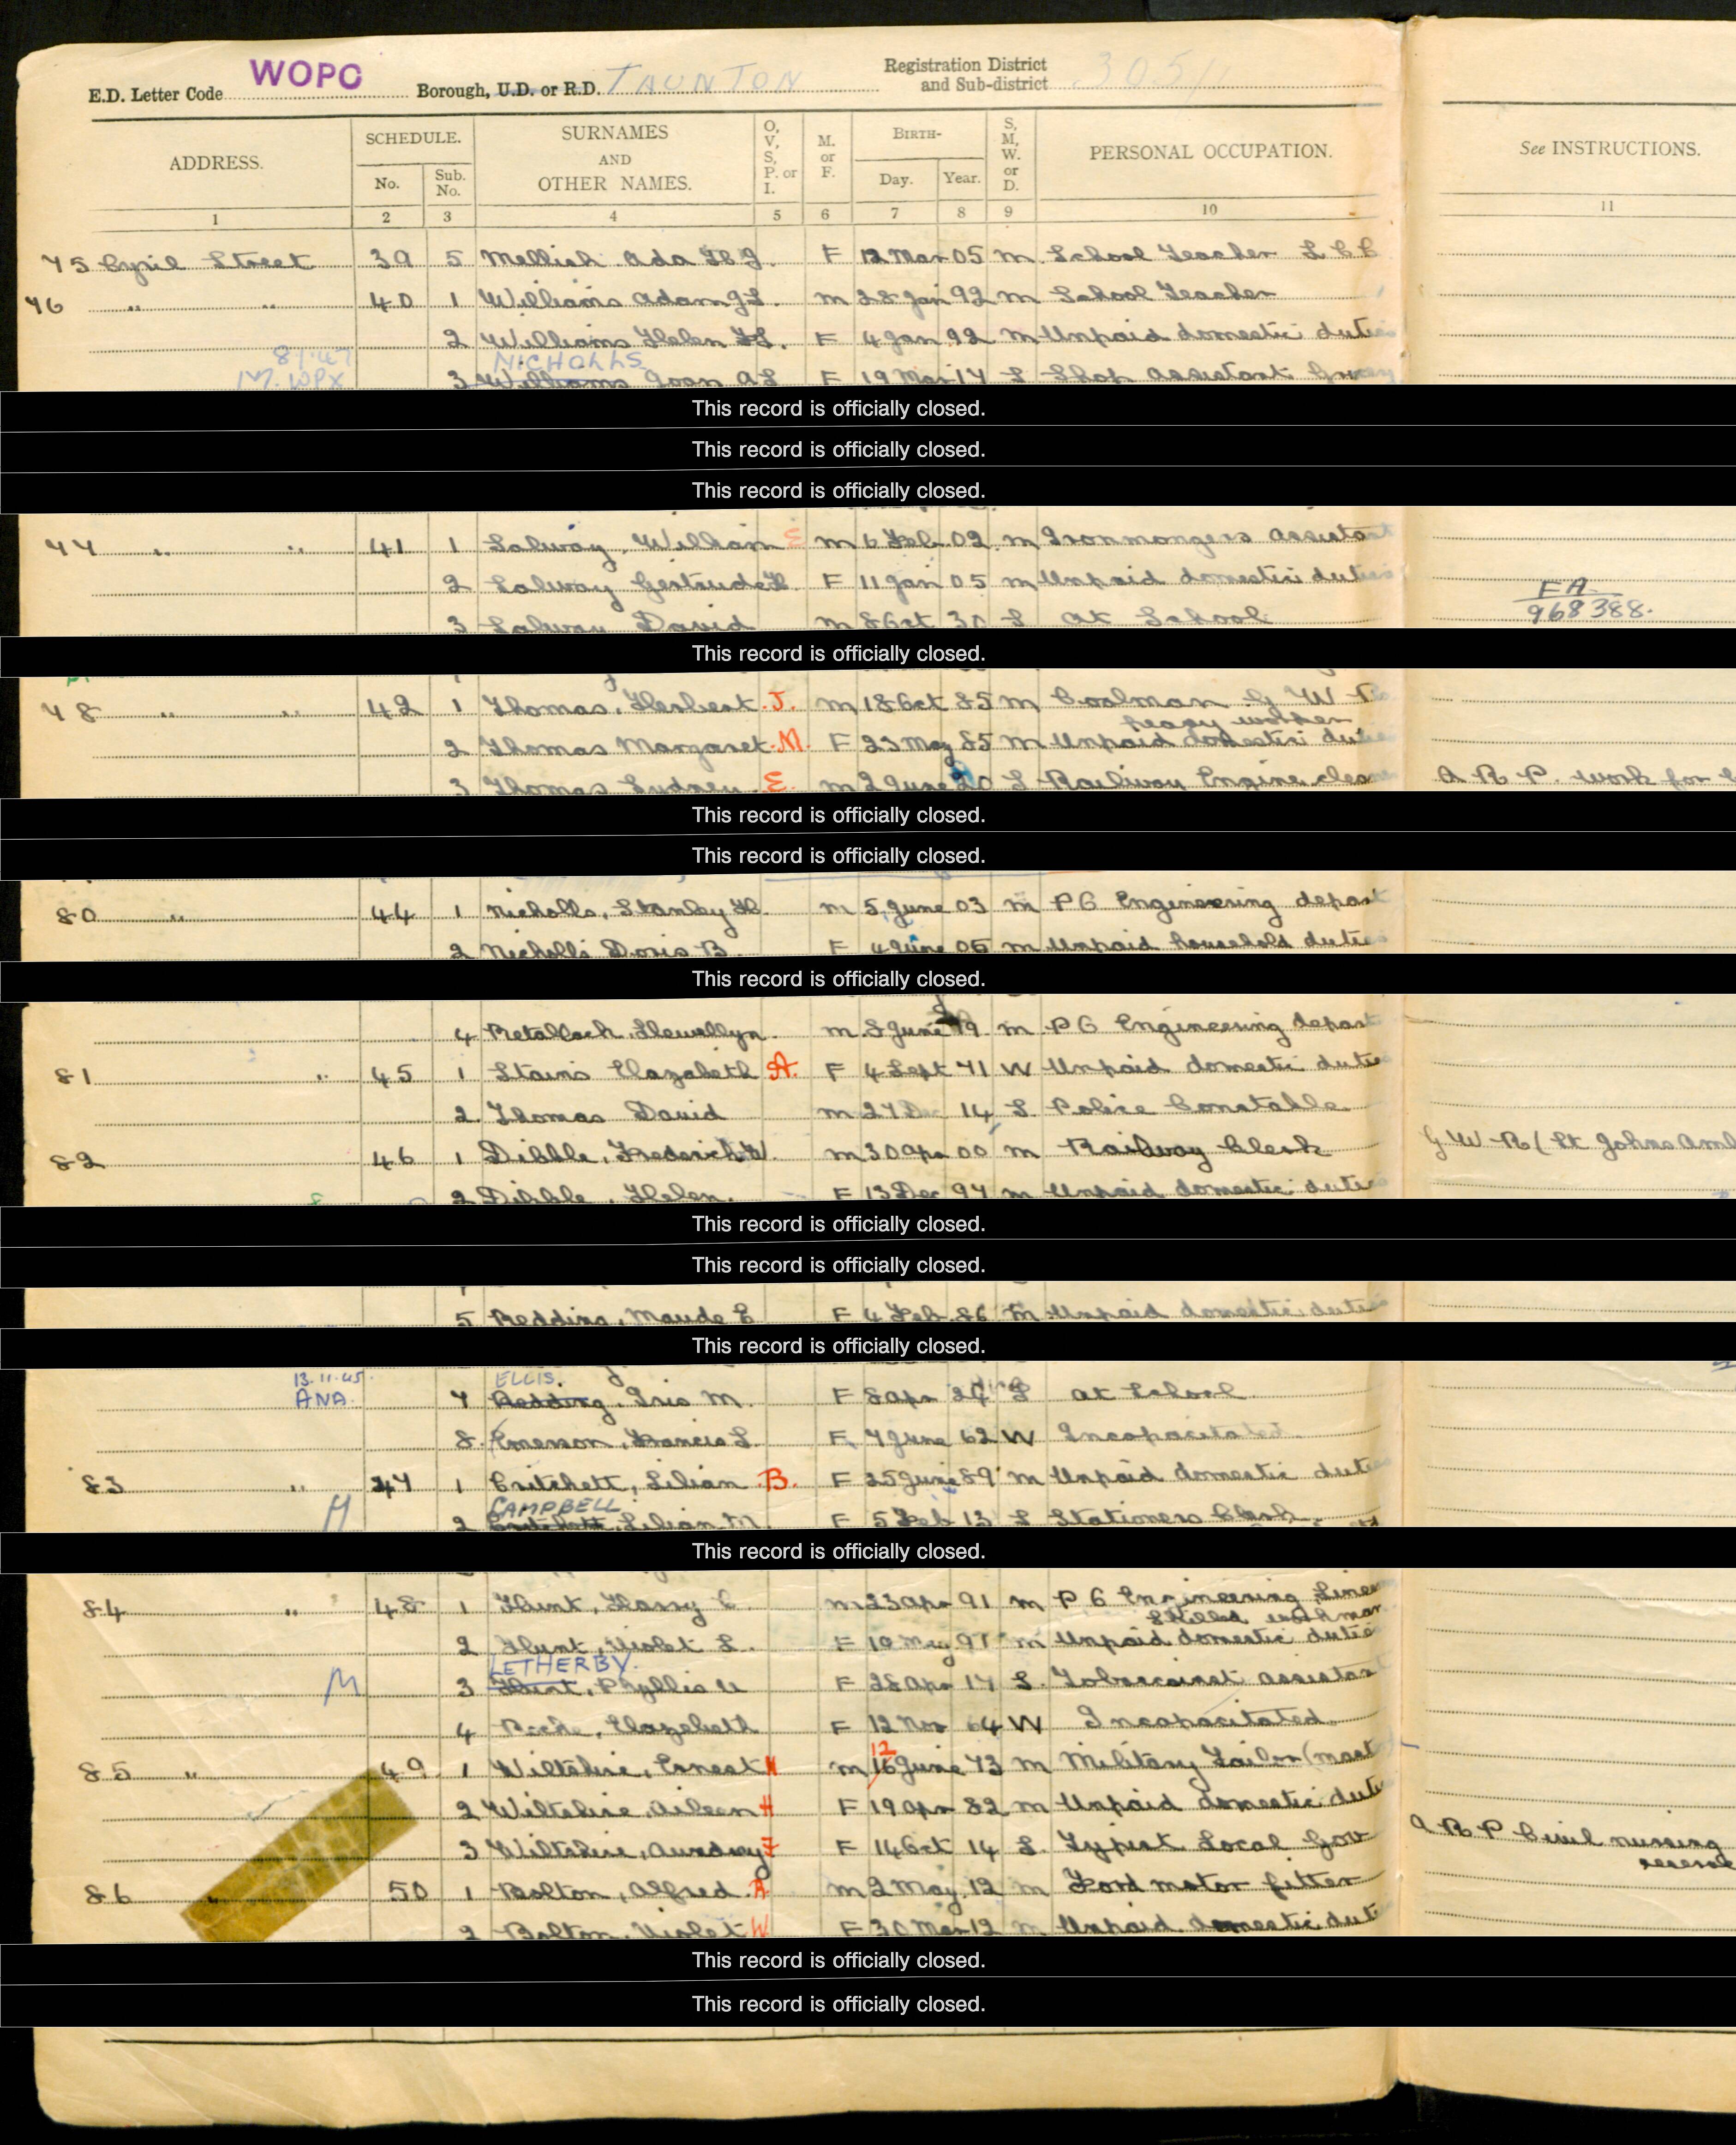 E.D. Letter Code WOPC Borough, U.D. or R.D. TAUNTON Registration District and Sub-district 305/1
ADDRESS. SCHEDULE. No. Sub. No. SURNAMES AND OTHER NAMES. O, V, S, P. or I. M. or F. BIRTH- Day. Year. S, M, W. or D. PERSONAL OCCUPATION. See INSTRUCTIONS.
1 2 3 4 5 6 7 8 9 10 11
75 Cyril Street 39 5 Mellish Ada F 12 Mar 05 M School Teacher L C C
76 " " 40 1 Williams Adam M 28 Jan 92 M School Teacher
2 Williams Helen F 4 Jan 92 M Unpaid domestic duties
NICHOLLS
3 Williams Joan A L F 19 Mar 17 S Shop Assistant
This record is officially closed.
This record is officially closed.
This record is officially closed.
77 " " 41 1 Salway, William E M 6 Feb 02 M Ironmongers Assistant
2 Salway Gertrude H F 11 Jan 05 M Unpaid domestic duties
3 Salway David M 8 Oct 30 S At School
FA
968388.
This record is officially closed.
78 " " 42 1 Thomas, Herbert J. M 18 Oct 85 M Coalman G W R
heavy worker
2 Thomas Margaret M. F 23 May 85 M Unpaid domestic duties
3 Thomas Sydney E. M 2 June 20 S Railway Engine cleaner A R P. work for
This record is officially closed.
This record is officially closed.
80 " 44 1 Nicholls, Stanley H. M 5 June 03 M P O Engineering depart
2 Nicholls Doris B. F 4 June 06 M Unpaid household duties
This record is officially closed.
4 Retallack, Llewellyn M 8 June 19 M P O Engineering depart
81 " 45 1 Stains Elazabeth A. F 4 Sept 71 W Unpaid domestic duties
2 Thomas David M 27 Dec 14 S Police Constable
82 46 1 Dibble, Frederick W. M 30 Apr 00 M Railway Clerk G W R (St Johns Amb
2 Dibble, Helen. F 13 Dec 97 M Unpaid domestic duties
This record is officially closed.
This record is officially closed.
5 Redding, Maude E F 4 Feb 86 M Unpaid domestic duties
This record is officially closed.
13.11.45. ELLIS.
ANA. 7 Redding, Iris M. F 8 Apr 24 S At School
8 Emerson, Francis L. F 7 June 62 W Incapacitated
83 " 47 1 Critchett, Lilian B. F 25 June 89 M Unpaid domestic duties
CAMPBELL
M 2 Critchett, Lilian M. F 5 Feb 13 S Stationers Clerk
This record is officially closed.
84 " 48 1 Hunt, Harry C. M 23 Apr 91 M P O Engineering
Skilled workman
2 Hunt, Violet L. F 10 May 97 M Unpaid domestic duties
LETHERBY.
M 3 Hunt, Phyllis U F 28 Apr 17 S. Tobacconist assistant
4 Elazabeth F 12 Nov 64 W Incapacitated
12
85 " 49 1 Wiltshire, Ernest H M 16 June 73 M Military Tailor (mast
2 Wiltshire, Aileen H F 19 Apr 82 M Unpaid domestic duties
3 Wiltshire, Audrey F F 14 Oct 14 S. Typist Local Gov A R P Civil nursing
reserve
86 " 50 1 Bolton, Alfred. A M 2 May 12 M Ford motor fitter
2 Bolton, Violet W F 30 Mar 12 M Unpaid domestic dut
This record is officially closed.
This record is officially closed.